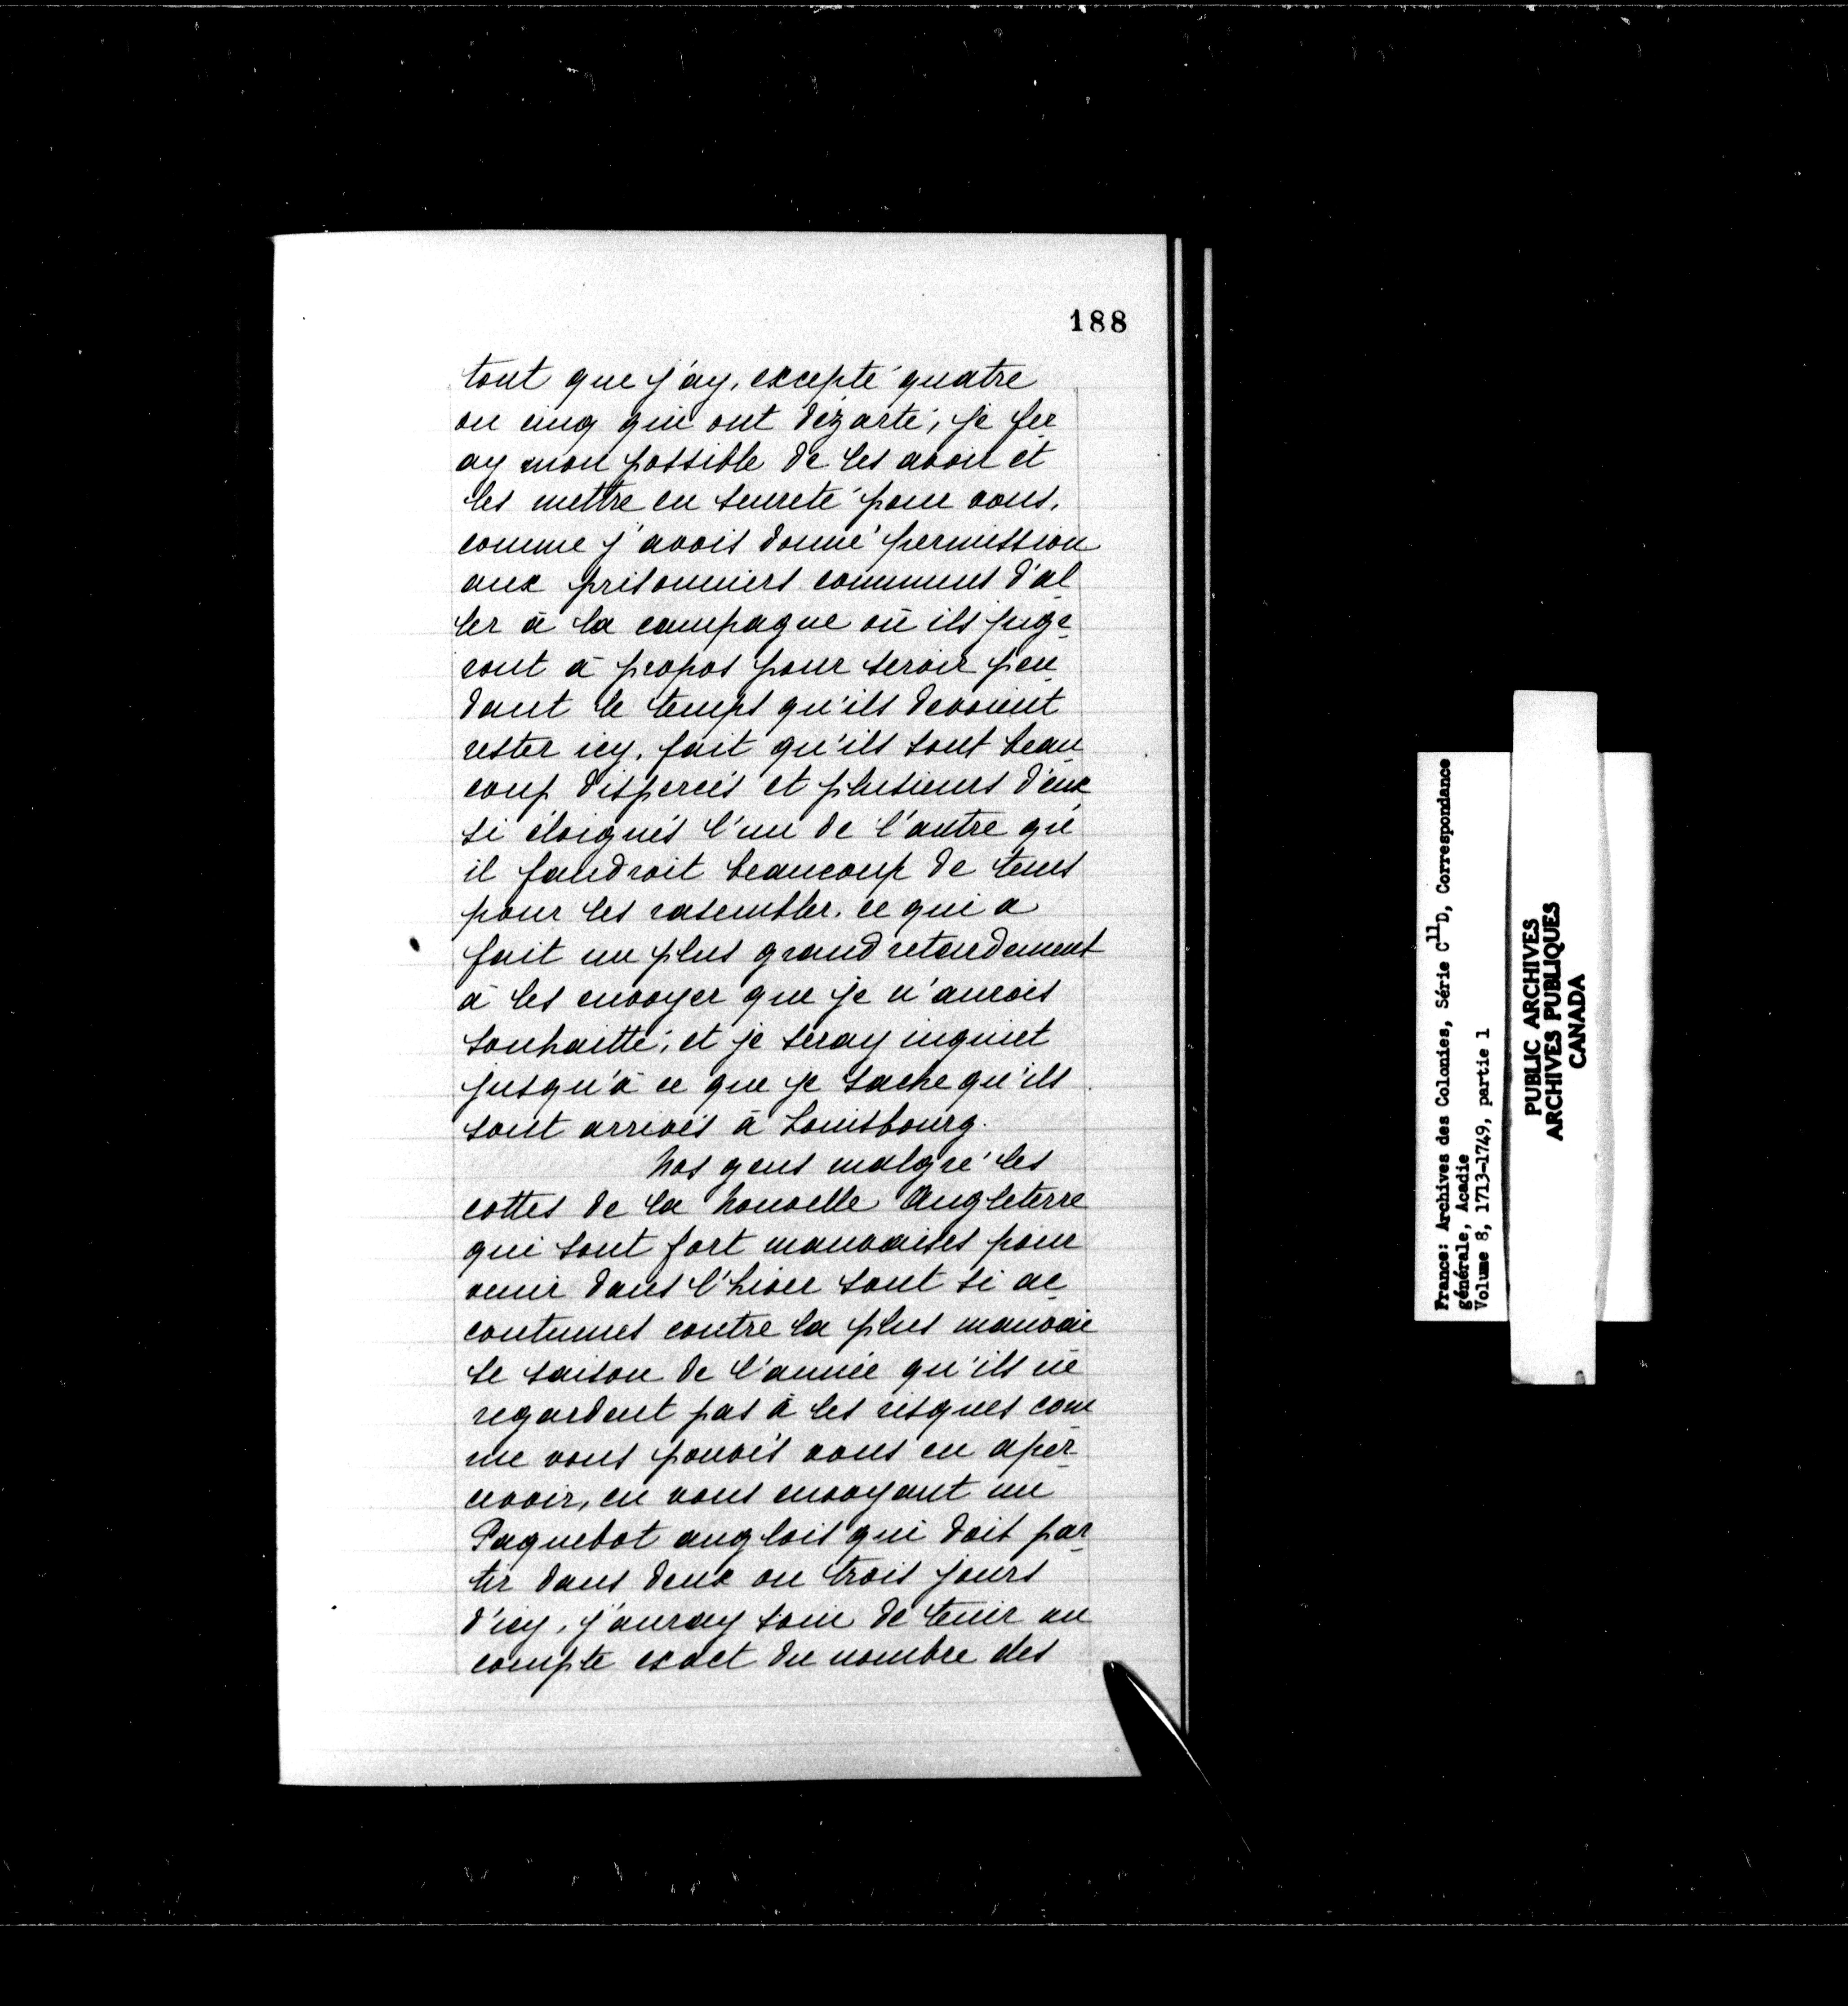 188
tout que j'ay, excepté quatre
ou cinq qui ont dézarté; je fer
ay mon possible de les avoir et
les mettre en seureté pour vous,
comme j'avois donné permission
aux prisonniers communs d'al
ler à la campagne où ils juge
ront à propos pour servir pen
dant le temps qu'ils devoient
rester icy, fait qu'ils sont beau
coup dispercés et plusieurs d'eux
si éloignés l'un de l'autre qu'
il faudroit beaucoup de tems
pour les rasembler. ce qui a
fait un plus grand retardement
à les envoyer que je n'aurois
souhaitté; et je seray inquiet
jusqu'à ce que je sache qu'ils
sont arrivés à Louisbourg.
Nos gens malgré les
cottes de la Nouvelle Angleterre
qui sont fort mauvaises pour
venir dans l'hiver sont si ac
coutumes contre la plus mauvai
se saison de l'année qu'ils ne
regardent pas à les risques com
me vous pouvés vous en aper
cevoir, en vous envoyant un
Paquebot anglois qui doit par
tir dans deux ou trois jours
d'icy, j'auray soin de tenir un
compte exact du nombre des
France: Archives des Colonies, Série C11D, Correspondance
générale, Acadie
Volume 8, 1713-1749, partie 1
PUBLIC ARCHIVES
ARCHIVES PUBLIQUES
CANADA